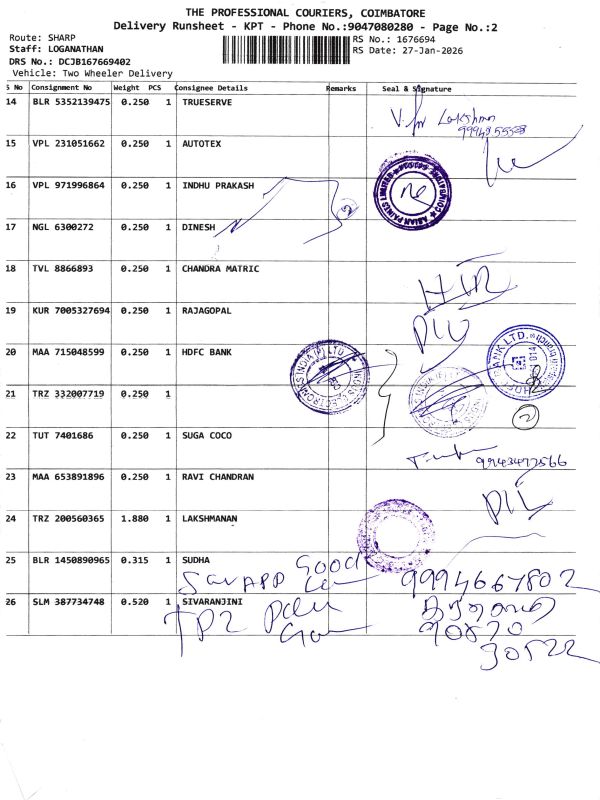 THE PROFESSIONAL COURIERS, COIMBATORE
Delivery Runsheet - KPT - Phone No.:9047080280 - Page No.:2
Route: SHARP
RS No.: 1676694
Staff: LOGANATHAN
RS Date: 27-Jan-2026
DRS No.: DCJB167669402
Vehicle: Two Wheeler Delivery
S No Consignment No Weight PCS Consignee Details Remarks Seal & Signature
14 BLR 5352139475 0.250 1 TRUESERVE
Lakshman
15 VPL 231051662 0.250 1 AUTOTEX
16 VPL 971996864 0.250 1 INDHU PRAKASH
ASIAN PAINTS LIMITED
17 NGL 6300272 0.250 1 DINESH
18 TVL 8866893 0.250 1 CHANDRA MATRIC
19 KUR 7005327694 0.250 1 RAJAGOPAL
20 MAA 715048599 0.250 1 HDFC BANK
BANK LTD.
21 TRZ 332007719 0.250 1
2
22 TUT 7401686 0.250 1 SUGA COCO
23 MAA 653891896 0.250 1 RAVI CHANDRAN
24 TRZ 200560365 1.880 1 LAKSHMANAN
25 BLR 1450890965 0.315 1 SUDHA
Good
9994667802
26 SLM 387734748 0.520 1 SIVARANJINI
90870
30522